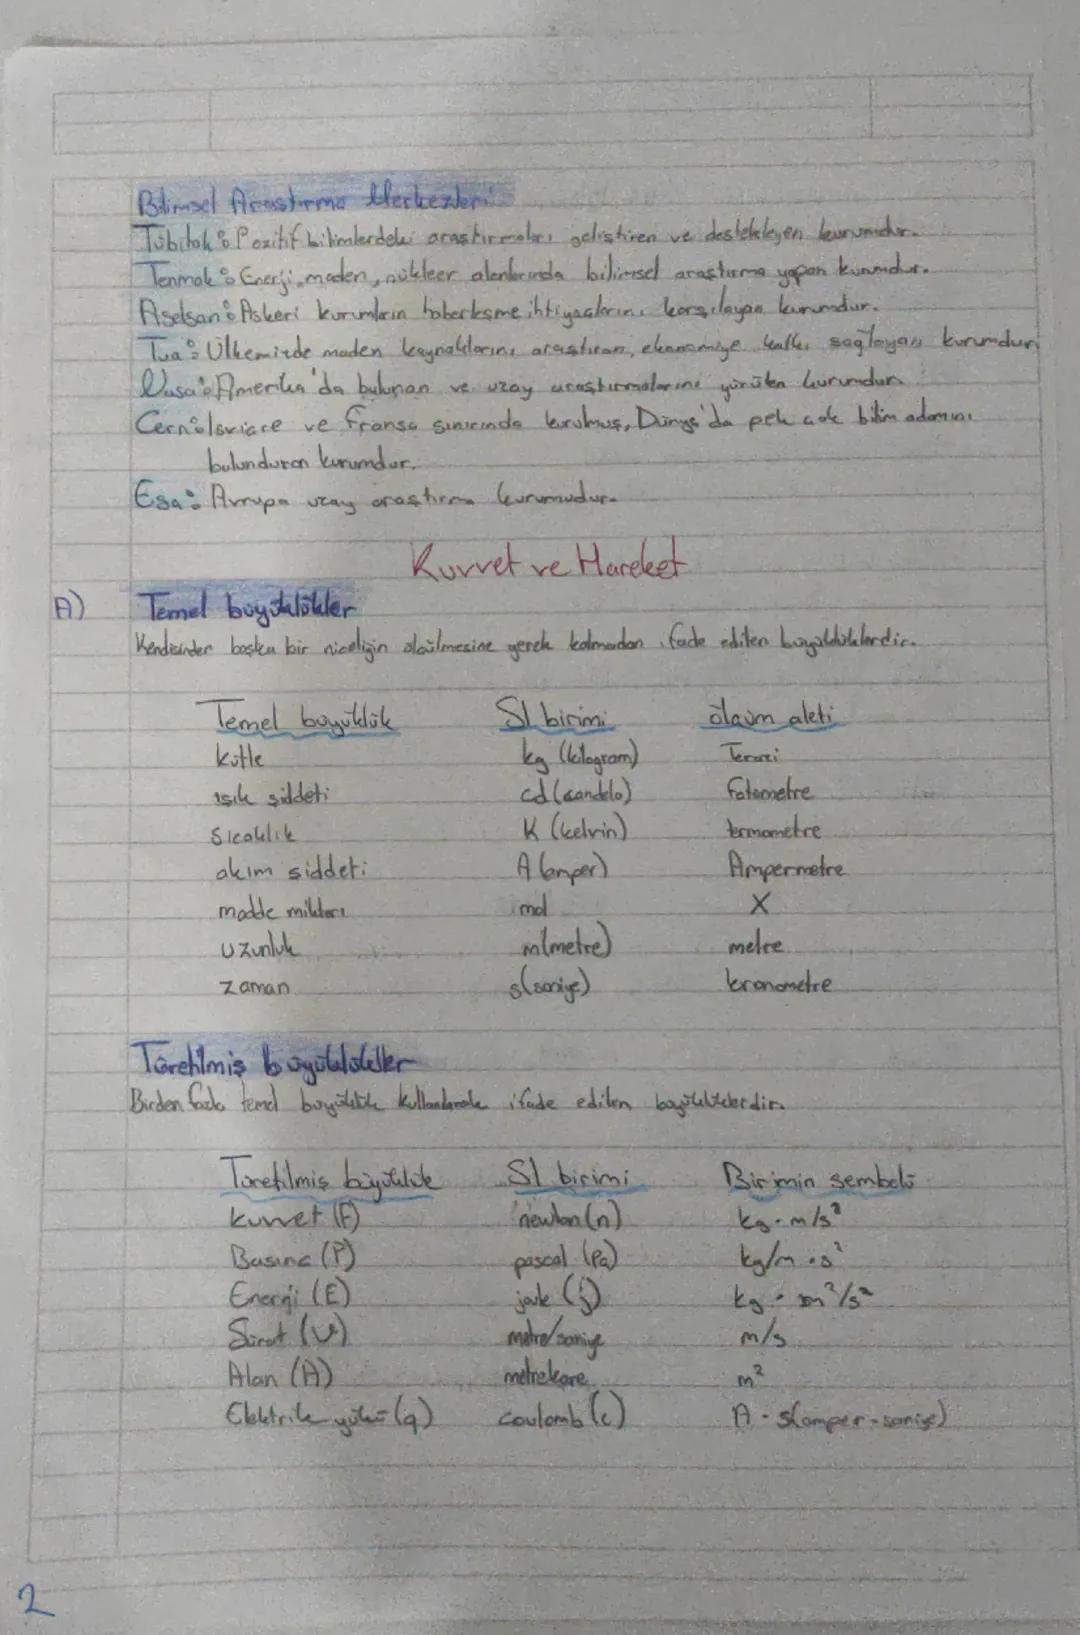 Bilimsel Araştırma Merkezleri
Tübitak: Pozitif bilimlerdeki araştırmaları geliştiren ve destekleyen kurumdur.
Tenmak: Enerji, maden, nükleer alanlarında bilimsel araştırma yapan kurumdur.
Aselsan: Askeri kurumların haberleşme ihtiyaçlarını karşılayan kurumdur.
Tua: Ülkemizde maden kaynaklarını araştıran, ekonomiye katkı sağlayan kurumdur
Nasa: Amerika'da bulunan ve uzay araştırmalarını yürüten kurumdur.
Cern: İsviçre ve Fransa sınırında kurulmuş, Dünya'da pek çok bilim adamını
bulunduran kurumdur.
Esa: Avrupa uzay araştırma kurumudur.
Kuvvet ve Hareket
A) Temel büyüklükler
Kendisinden başka bir niceliğin ölçülmesine gerek kalmadan ifade edilen büyüklüklerdir.
Temel büyüklük SI birimi ölçüm aleti
kütle kg (kilogram) Terazi
ışık şiddeti cd (candela) fotometre
Sıcaklık K (kelvin) termometre
akım şiddeti A (amper) Ampermetre
madde miktarı mol X
uzunluk m(metre) metre
zaman s(saniye) kronometre
Türetilmiş büyüklükler
Birden fazla temel büyüklük kullanılarak ifade edilen büyüklüklerdir.
Türetilmiş büyüklük SI birimi Birimin sembolü
kuvvet (F) newton (n) kg.m/s²
Basınç (P) pascal (Pa) kg/m.s²
Enerji (E) joule (j) kg.m²/s²
Sürat (v) metre/saniye m/s
Alan (A) metrekare m²
Elektrik yükü (q) coulomb (c) A-s(amper-saniye)
2